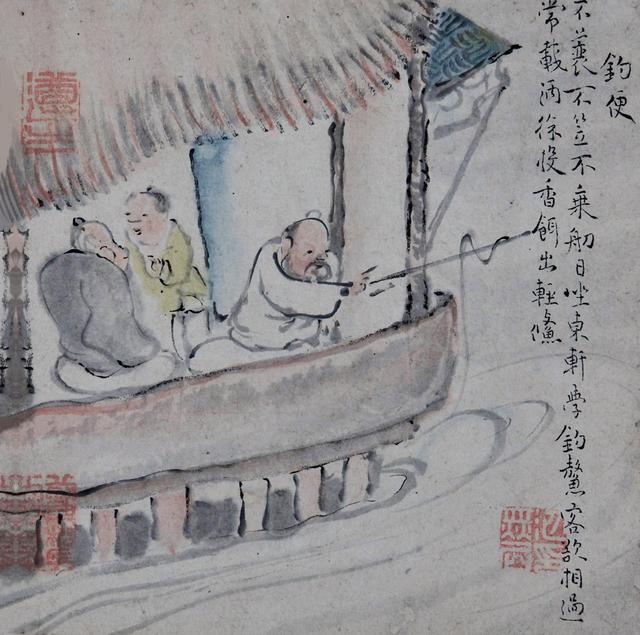 釣便
不蓑不笠不乘舠日坐東軒學釣鰲客欲相過
常載酒徐投香餌出輕鯈